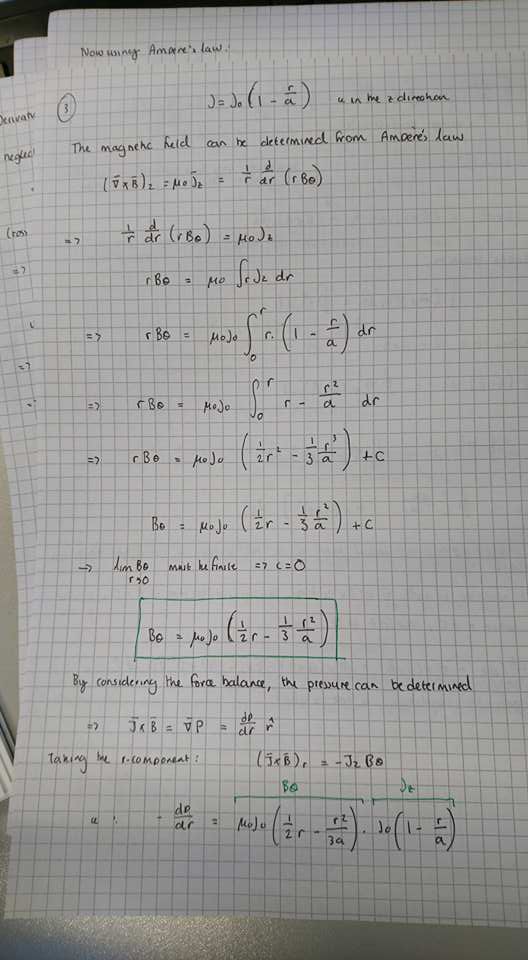 Now using Ampere's law:
Derivat
neglec
(ross
=>
=>
③ J = J₀ (1 - r/a) in the z direction
The magnetic field can be determined from Ampere's law
(∇̄ x B̄)z = μ₀ J̄z = 1/r d/dr (rBθ)
=> 1/r d/dr (rBθ) = μ₀Jz
rBθ = μ₀ ∫rJz dr
=> rBθ = μ₀J₀ ∫₀ʳ r. (1 - r/a) dr
=> rBθ = μ₀J₀ ∫₀ʳ r - r²/a dr
=> rBθ = μ₀J₀ (1/2 r² - 1/3 r³/a) + C
Bθ = μ₀J₀ (1/2 r - 1/3 r²/a) + C
-> lim r→0 Bθ must be finite => C = 0
Bθ = μ₀J₀ (1/2 r - 1/3 r²/a)
By considering the force balance, the pressure can be determined
=> J̄ x B̄ = ∇̄P = dp/dr r̂
Taking the r-component: (J̄ x B̄)r = -Jz Bθ
Bθ Jz
: - dp/dr = μ₀J₀ (1/2 r - r²/3a) . J₀ (1 - r/a)